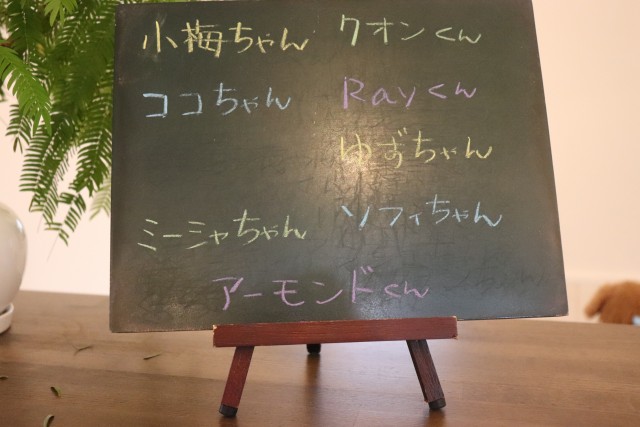 小梅ちゃん クオンくん
ココちゃん Rayくん
ゆずちゃん
ミーシャちゃん ソフィちゃん
アーモンドくん